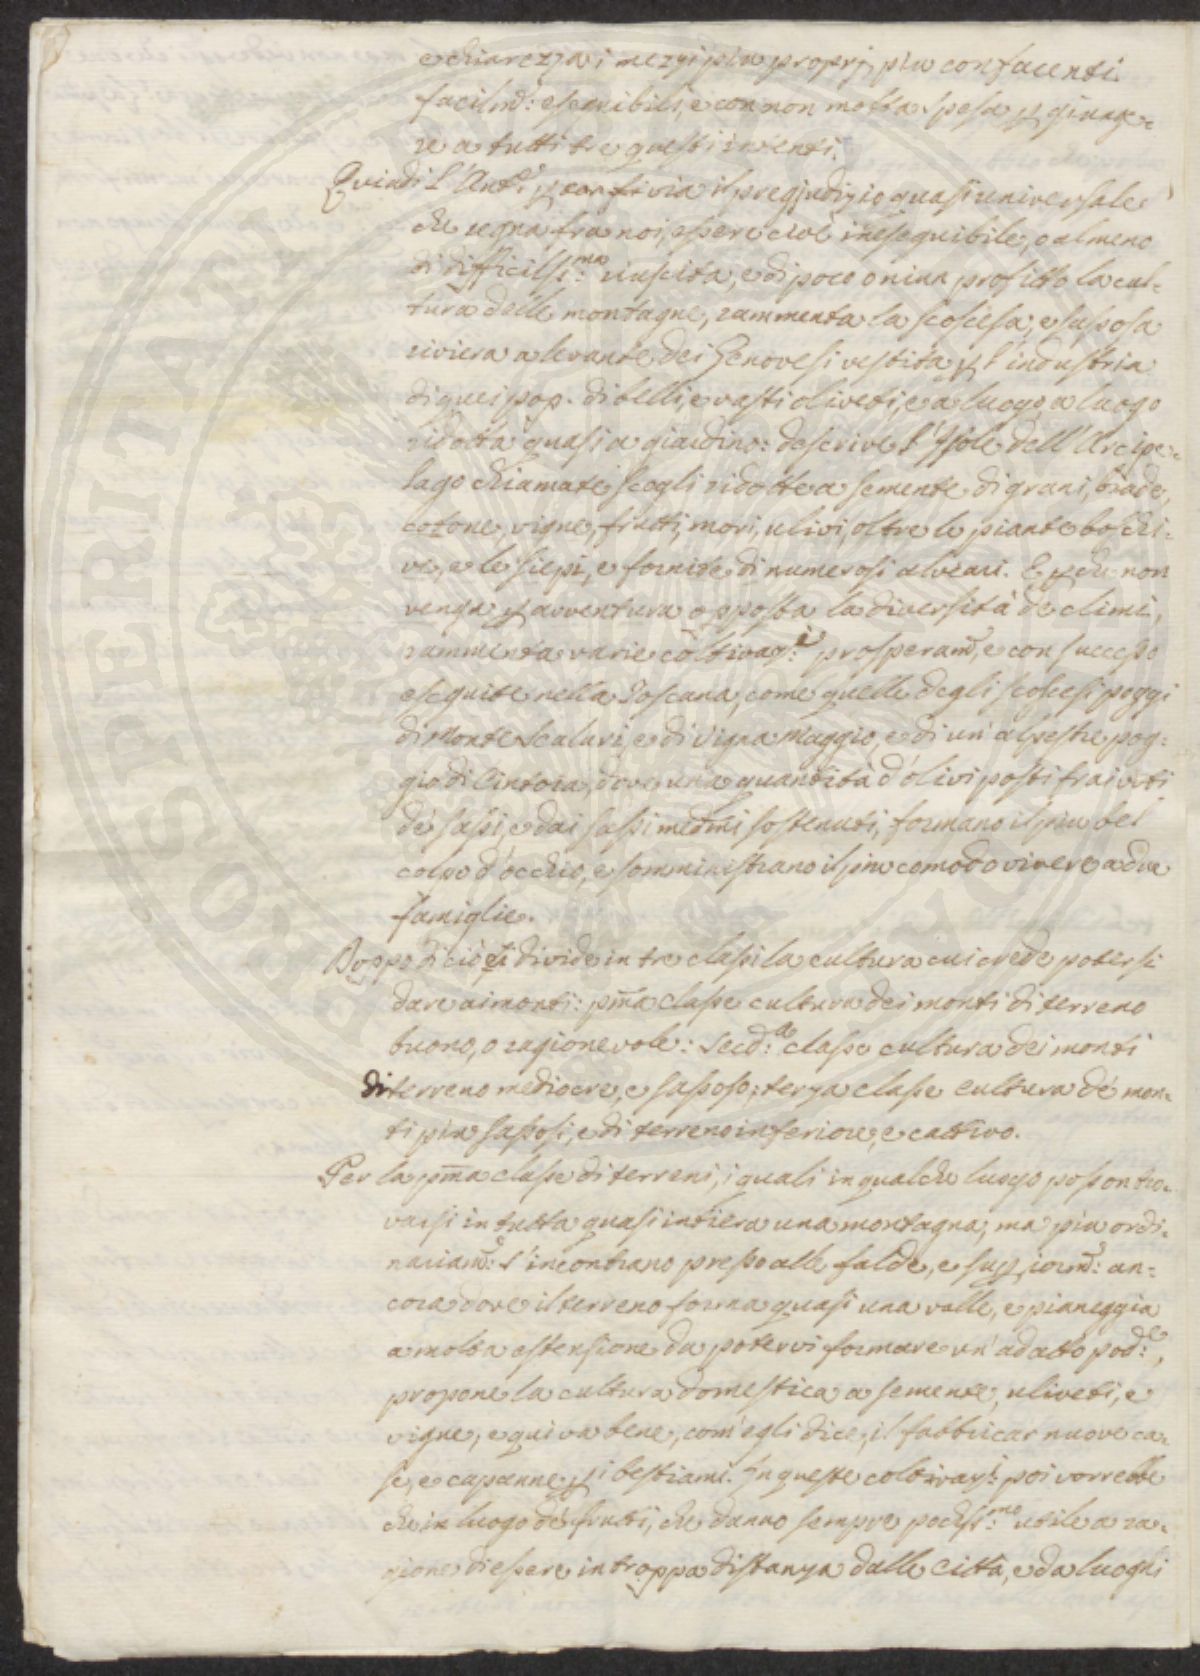 e chiarezza i mezzi piu proprj, piu confacenti
facilm: eseguibili, e con non molta spesa p giunge-
re a tutti tre questi intenti.
Quindi l'Aut.e p via il pregiudizio quasi universale
che regna fra noi, essere cioè ineseguibile, o almeno
di difficiliss:ma riuscita, e di poco o niun profitto la cul-
tura delle montagne, rammenta la scoscesa, e sassosa
riviera a levante dei Genovesi vestita p l'industria
di quei pop. di belli, e vasti oliveti, e a luogo a luogo
ridotta quasi a giardino: descrive l'Isole dell'Arcipe-
lago chiamate scogli ridotte a semente di grani, biade,
cotone, vigne, frutti, mori, ulivi, oltre le piante boschi-
ve, e le siepi, e fornite di numerosi alveari. E p che non
venga p avventura opposta la diversità de climi,
rammenta varie coltivaz:i prosperam.e, e con successo
eseguite nella Toscana, come quelle degli scoscesi poggi
di Monte Scalari, e di Vigna Maggio, e di un' alpestre pog-
gio di Cintoia, dove una quantità d'olivi posti frai voti
de' sassi, e dai sassi medmi sostenuti, formano il piu bel
colpo d'occhio, e somministrano il piu comodo vivere a due
famiglie.
Doppo di ciò ei divide in tre classi la cultura cui crede potersi
dare ai monti: pma classe cultura dei monti di terreno
buono, o ragionevole: Secd:a classe cultura dei monti
di terreno mediocre, e sassoso; terza classe cultura de' mon-
ti piu sassosi, e di terreno inferiore, e cattivo.
Per la pma classe di terreni, i quali in qualche luogo posson tro-
varsi in tutta quasi intiera una montagna, ma piu ordi-
nariam.e: s'incontrano presso alle falde, e supiorm.e: an-
cora dove il terreno forma quasi una valle, e pianeggia
a molta estensione da potervi formare un' adatto pod:e,
propone la cultura domestica a semente, uliveti, e
vigne, e qui va bene, com' egli dice, il fabbricar nuove ca-
se, e capanne p i bestiami. In queste coltivaz:i poi vorrebbe
che in luogo de' frutti, che danno sempre pochis:mo utile a ca-
gione di essere in troppa distanza dalle città, e da luoghi